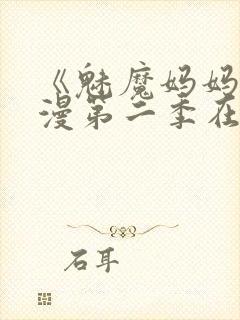 《魅魔妈妈
漫第二季在
石耳